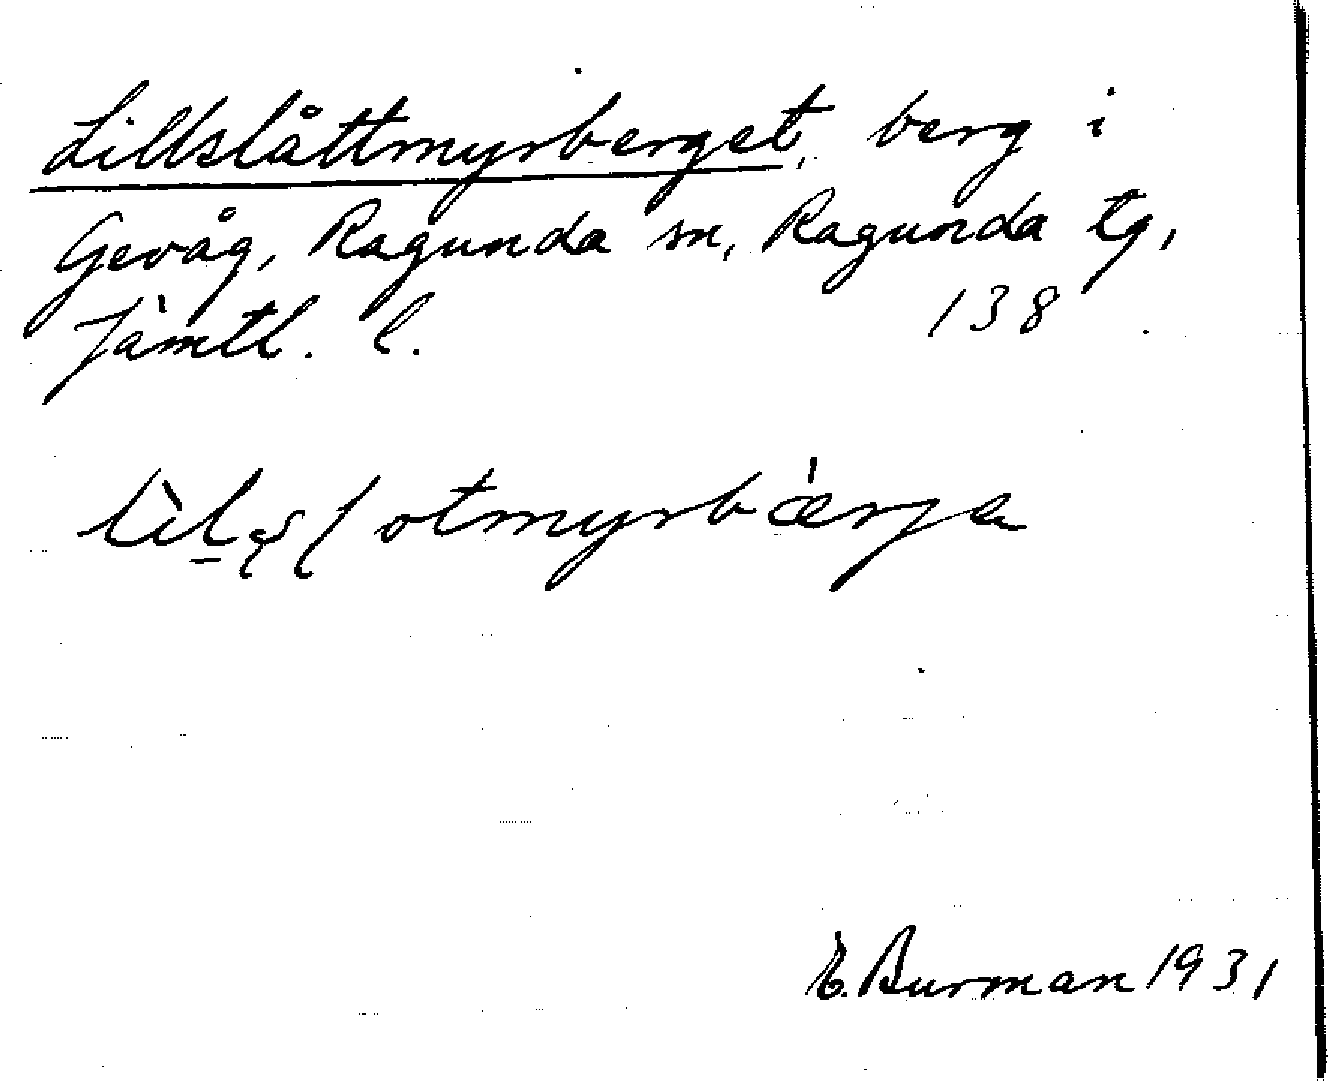 Lillslåttmyrberget, berg i
Gevåg, Ragunda sn, Ragunda tg,
Jämtl. l. 138
E. Burman 1931